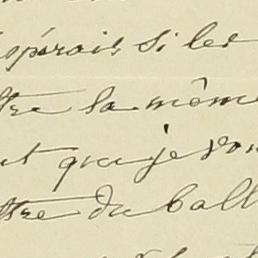 espérais si les
tre la même
ut que je vou
ttre du ball